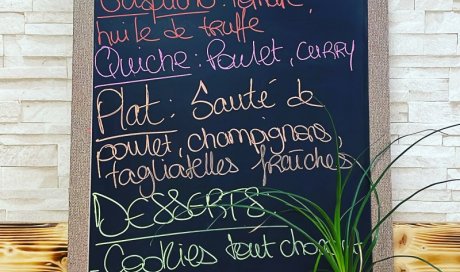 Gaspacho: Tomate,
huile de truffe
Quiche: Poulet, curry
Plat: Sauté de
poulet, champignons,
tagliatelles fraîches
DESSERTS:
- Cookies tout chocolat